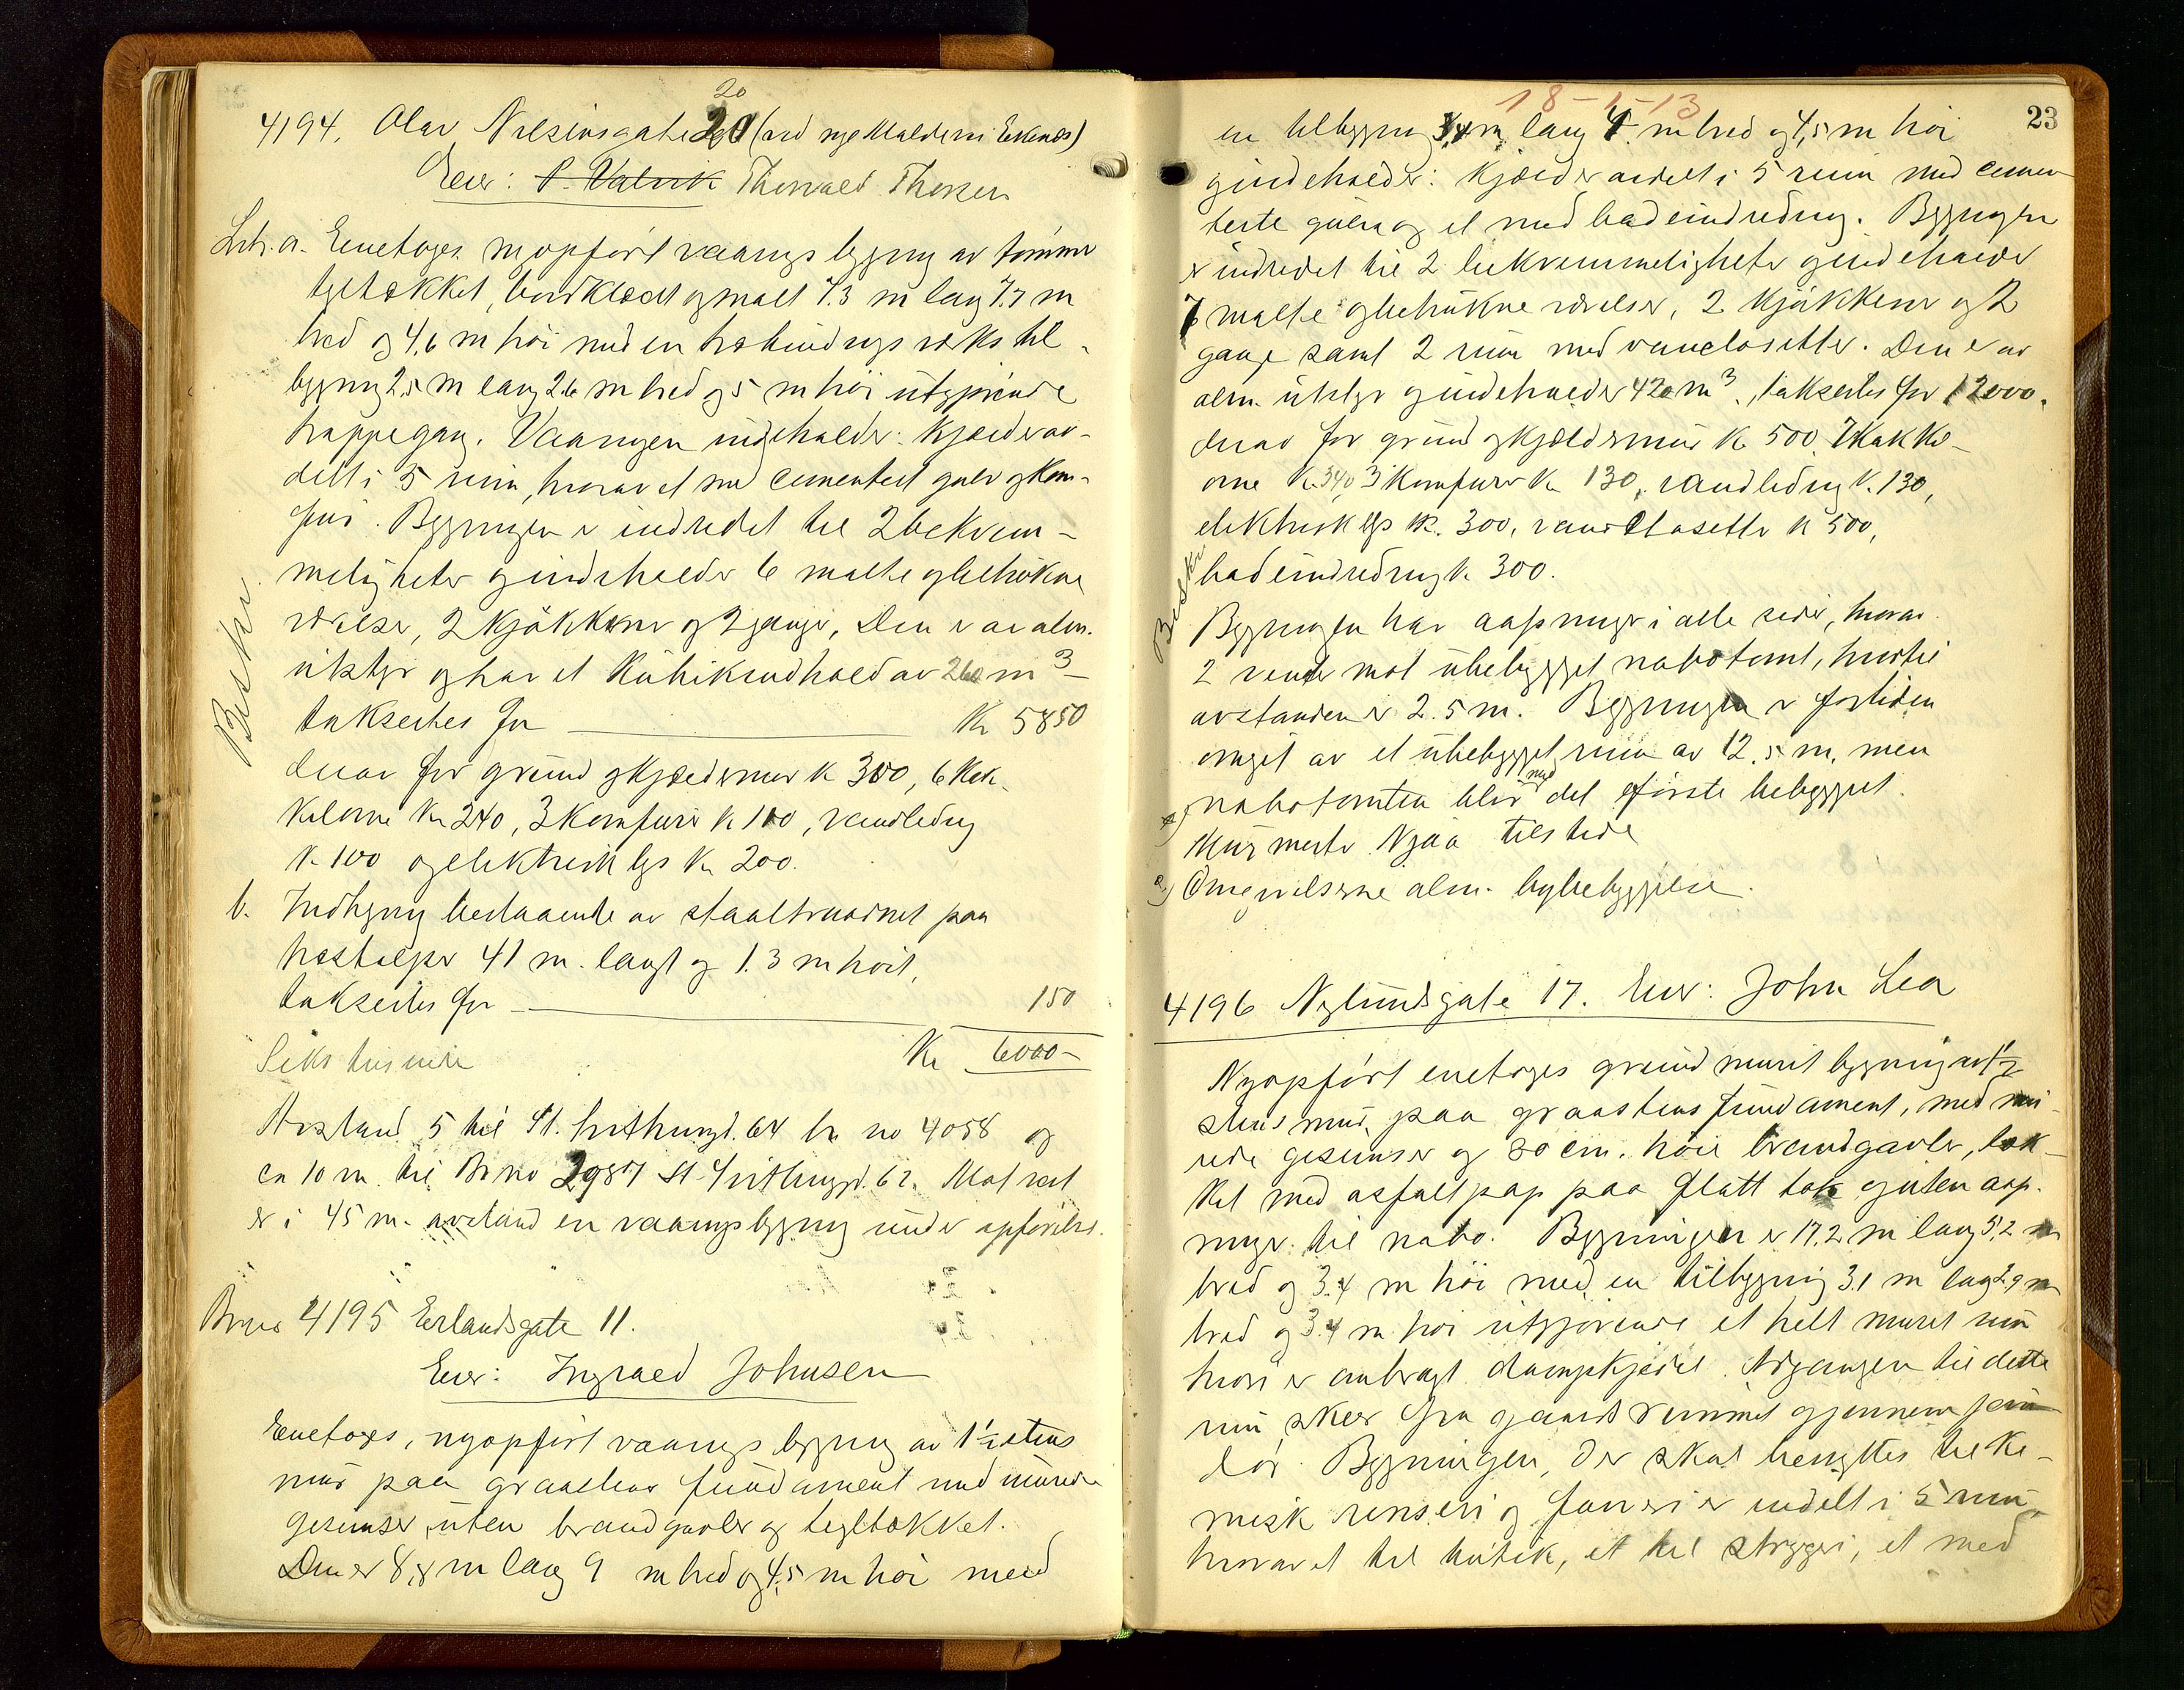 20
4194. Olav Nilsensgate 20 (ved nye Malderi Enemos)
Eier: P. Valvik Thorvald Thorsen
Litr. a. Enetages nyopført vaanings bygning av tømmer
teltækket, bordklædt og malt 7.3 m lang 7.7 m
bred og 4,6 m høi med en trebindingsverks til-
bygning 2.5 m lang 2.6 m bred og 5 m høi utgjørende
trappegang. Vaaningen indeholder: kjælder av-
delt i 5 rum, hvorav et med cementert gulv og kom-
fur. Bygningen er indredet til 2 bekvem-
meligheter og indeholder 6 malte og betrukne
værelser, 2 kjøkkener og 2 gange, Den er av alm.
utstyr og har et kubikindhold av 260 m3 –
takseres for Kr 5850
derav for grund og kjældermur kr 300, 6 kak-
kelovne kr 240, 3 komfurer kr 100, vandledning
kr 100 og elektrisk lys kr 200.
b. Indhegning bestaaende av staaltraadnet paa
træstolper 41 m. langt og 1.3 m høit,
takseres for 150
Seks tusinde Kr 6000 –
Avstand 5 til St. Svithungd. 64 br no 4058 og
ca 10 m. til Br no 2987 St. Svithungd. 62. Mot vest
er i 45 m. avstand en vaaningsbygning under opførelse.
Br no 4195 Erlandsgate 11.
Eier: Ingvald Johnsen
Enetages, nyopført vaanings bygning av 1½ stens
mur paa graastens fundament med murede
gesimser uten brandgavler og tegltækket.
Den er 8,8 m lang 9 m bred og 4,5 m høi med
Beskr.
18-1-13
23
en tilbygning 3,4 m lang 4 m bred og 4,5 m høi
indeholder: Kjælder avdelt i 5 rum med cemen-
terte gulv og et med badeindredning. Bygningen
er indredet til 2 bekvemmeligheter og indeholder
7 malte og betrukne værelser, 2 kjøkkener og 2
gange samt 2 rum med vanclosetter. Den er av
alm. utstyr og indeholder 420 m3, takseres for 12000.
derav for grund og kjældermur kr 500. 7 kakkel-
ovne kr. 340, 3 komfurer kr 130, vandledning kr. 130,
elektrisk lys kr. 300, vandclosetter kr 500,
badeindredning kr. 300.
Bygningen har aapninger i alle sider, hvorav
2 vender mot ubebygget nabotomt, hvortil
avstanden er 2.5 m. Bygningen er fortiden
omgit av et ubebygget rum av 12.5 m, men
nabotomten blir med det første bebygget.
Murmester Njaa tilstede
2) Omgivelserne alm. bybebyggelse.
Beskr.
4196 Nylundsgate 17. Eier: John Lea
Nyopført enetages grundmuret bygning av 1½
stens mur, paa graastens fundament, med mu-
rede gesimser og 80 cm. høie brandgavler, tæk-
ket med asfaltpap paa flatt tak og uten aap-
ninger til nabo. Bygningen er 17,2 m lang 5,2 m
bred og 3.4 m høi med en tilbygning 3.1 m lang 2,9 m
bred og 3.4 m høi utgjørende et helt muret rum
hvori er anbragt dampkjedel. Adgangen til dette
rum sker fra gaardsrummet gjennem jern
dør. Bygningen, der skal benyttes til ke-
misk renseri og farveri er inddelt i 5 rum
hvorav et til butik, et til strygeri, et med